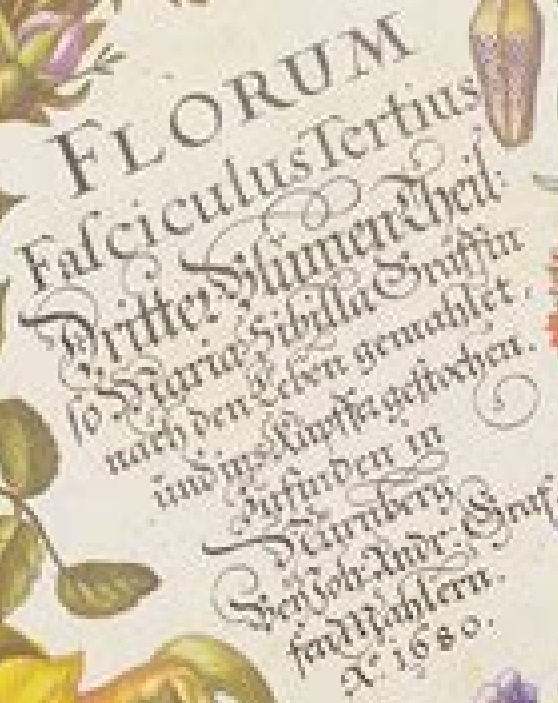 FLORUM
Faſciculus Tertius
Dritter Blümen Theil:
ſo Maria Sibilla Gräffin
nach den Leben gemahlet,
ünd ins Kupffer geſtochen.
Zufinden in
Nürnberg
Beÿ Joh: Andr: Graf=
fen Mahlern.
Aº: 1680.